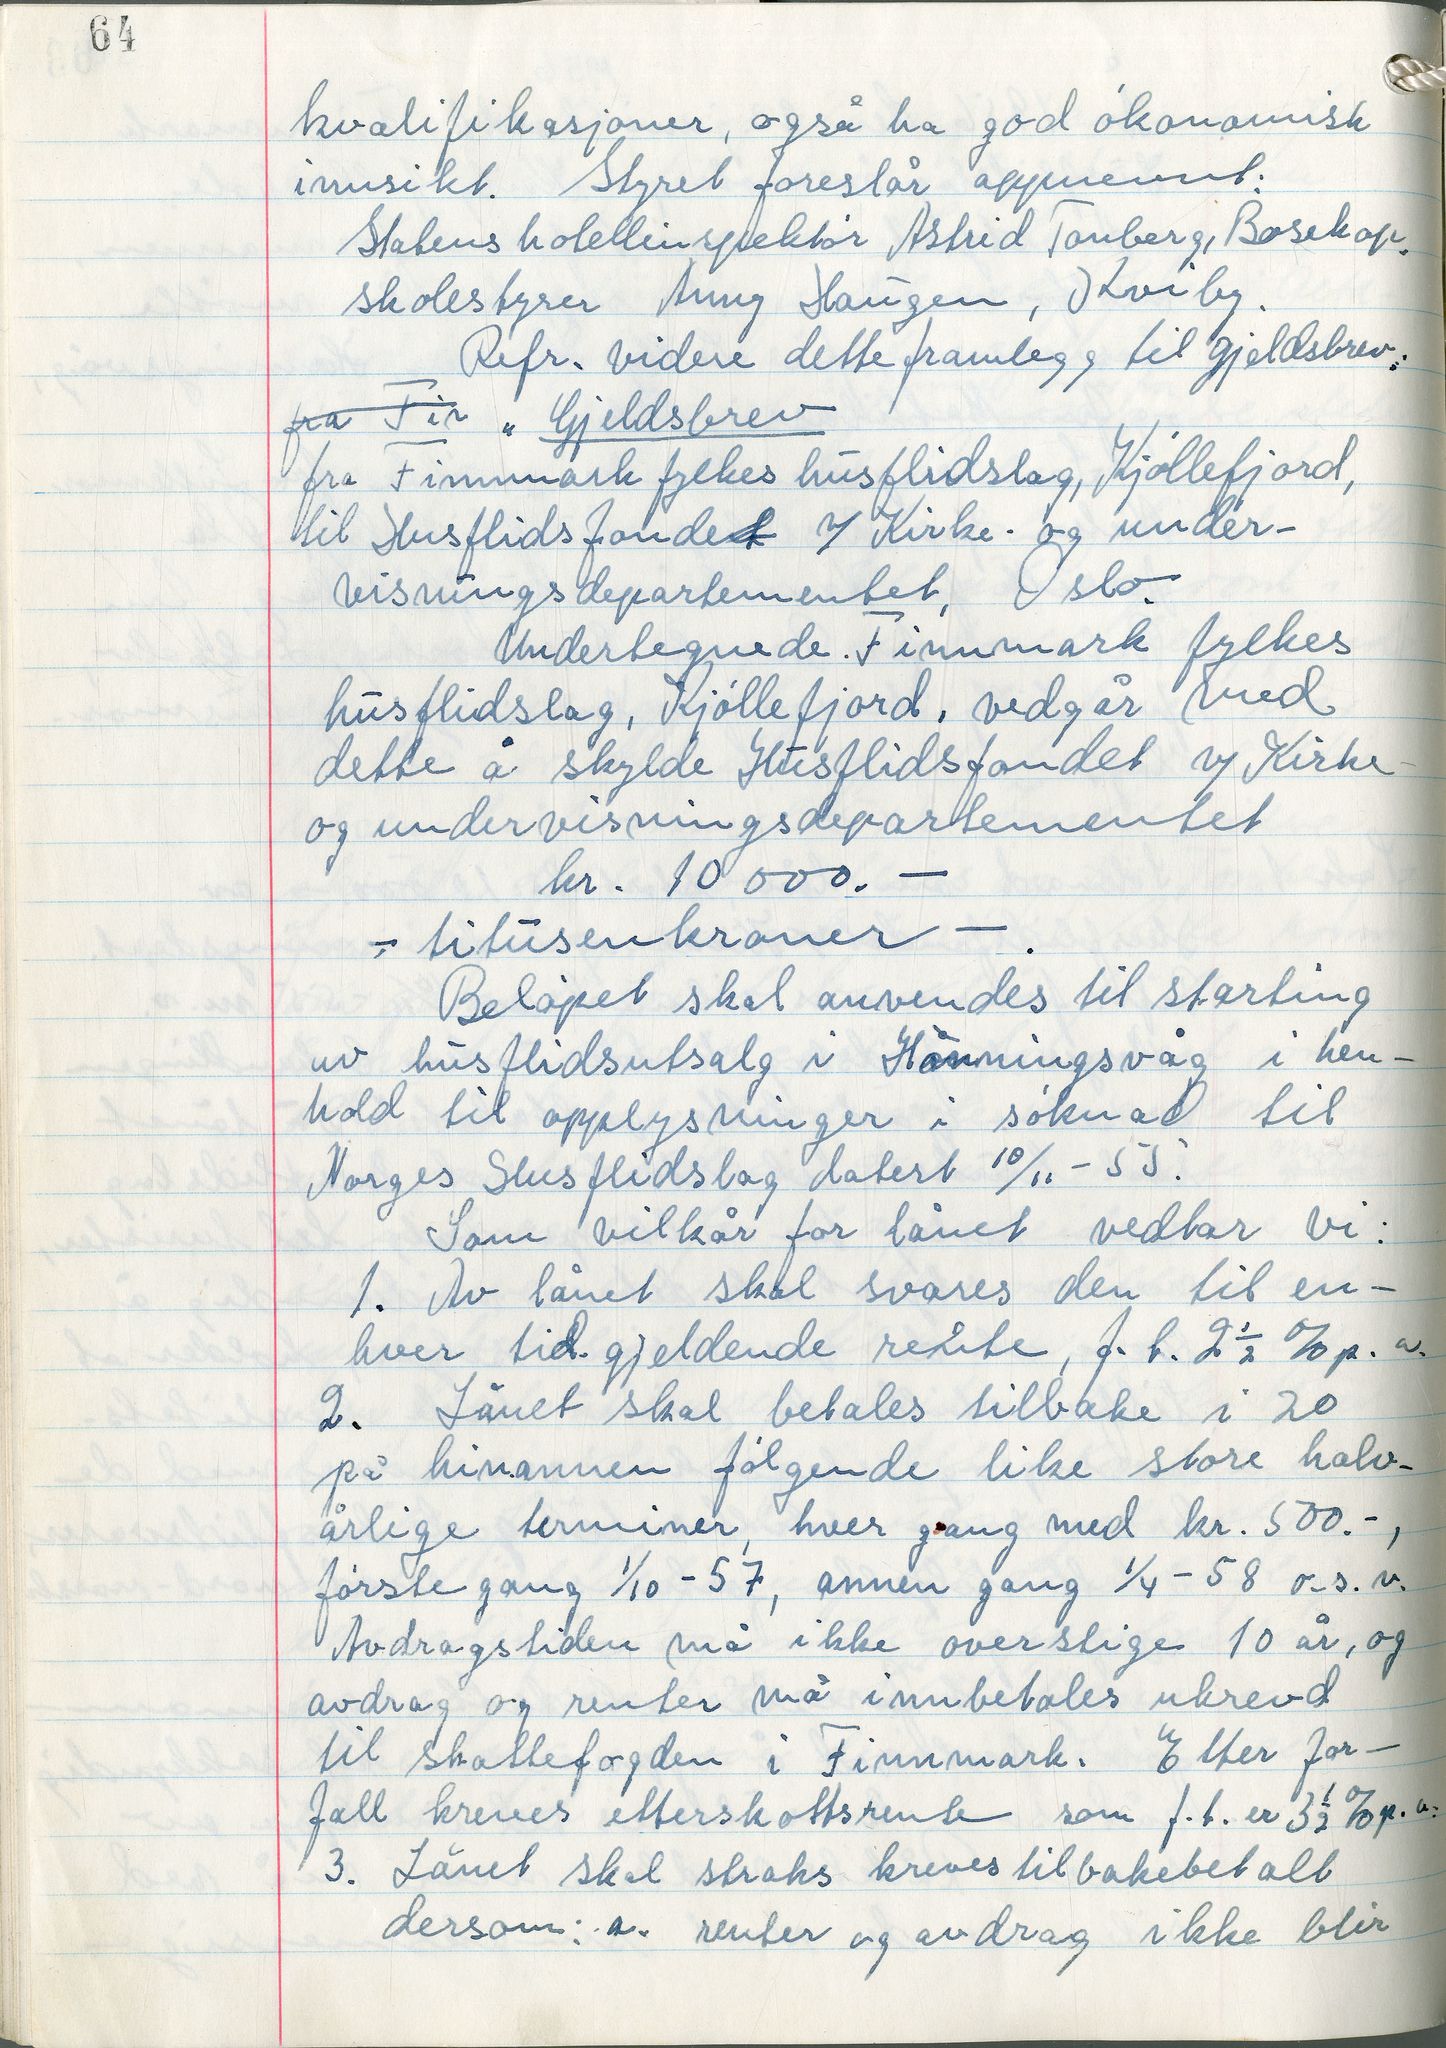 64
kvalifikasjoner, også ha god ökonomisk
innsikt. Styret foreslår oppnevnt:
Statens hotellinspektör Astrid Tonberg, Bosekop.
skolestyrer Anny Haugen, Kviby.
Refr. videre dette framlegg til gjeldsbrev:
fra Fin „ Gjeldsbrev
fra Finnmark fylkes husflidslag, Kjöllefjord,
til Husflidsfondet v/ Kirke- og under-
visningsdepartementet, Oslo.
Undertegnede. Finnmark fylkes
husflidslag, Kjöllefjord, vedgår med
dette å skylde Husflidsfondet v/ Kirke-
og undervisningsdepartementet
kr. 10 000. —
- titusenkroner — .
Belöpet skal anvendes til starting
av husflidsutsalg i Honningsvåg i hen-
hold til opplysninger i söknad til
Norges Husflidslag datert 10/11 - 55.
Som vilkår for lånet vedtar vi:
1. Av lånet skal svares den til en-
hver tid gjeldende rente, f. t. 2½ % p. a.
2. Lånet skal betales tilbake i 20
på hinannen fölgende like store halv-
årlige terminer, hver gang med kr. 500.-,
förste gang 1/10 - 57, annen gang 1/4 - 58 o.s.v.
Avdragstiden må ikke overstige 10 år, og
avdrag og renter må innbetales ukrevd
til skattefogden i Finnmark. Etter for-
fall kreves etterskottsrente som f.t. er 3½ % p. a.
3. Lånet skal straks kreves tilbakebetalt
dersom: a. renter og avdrag ikke blir